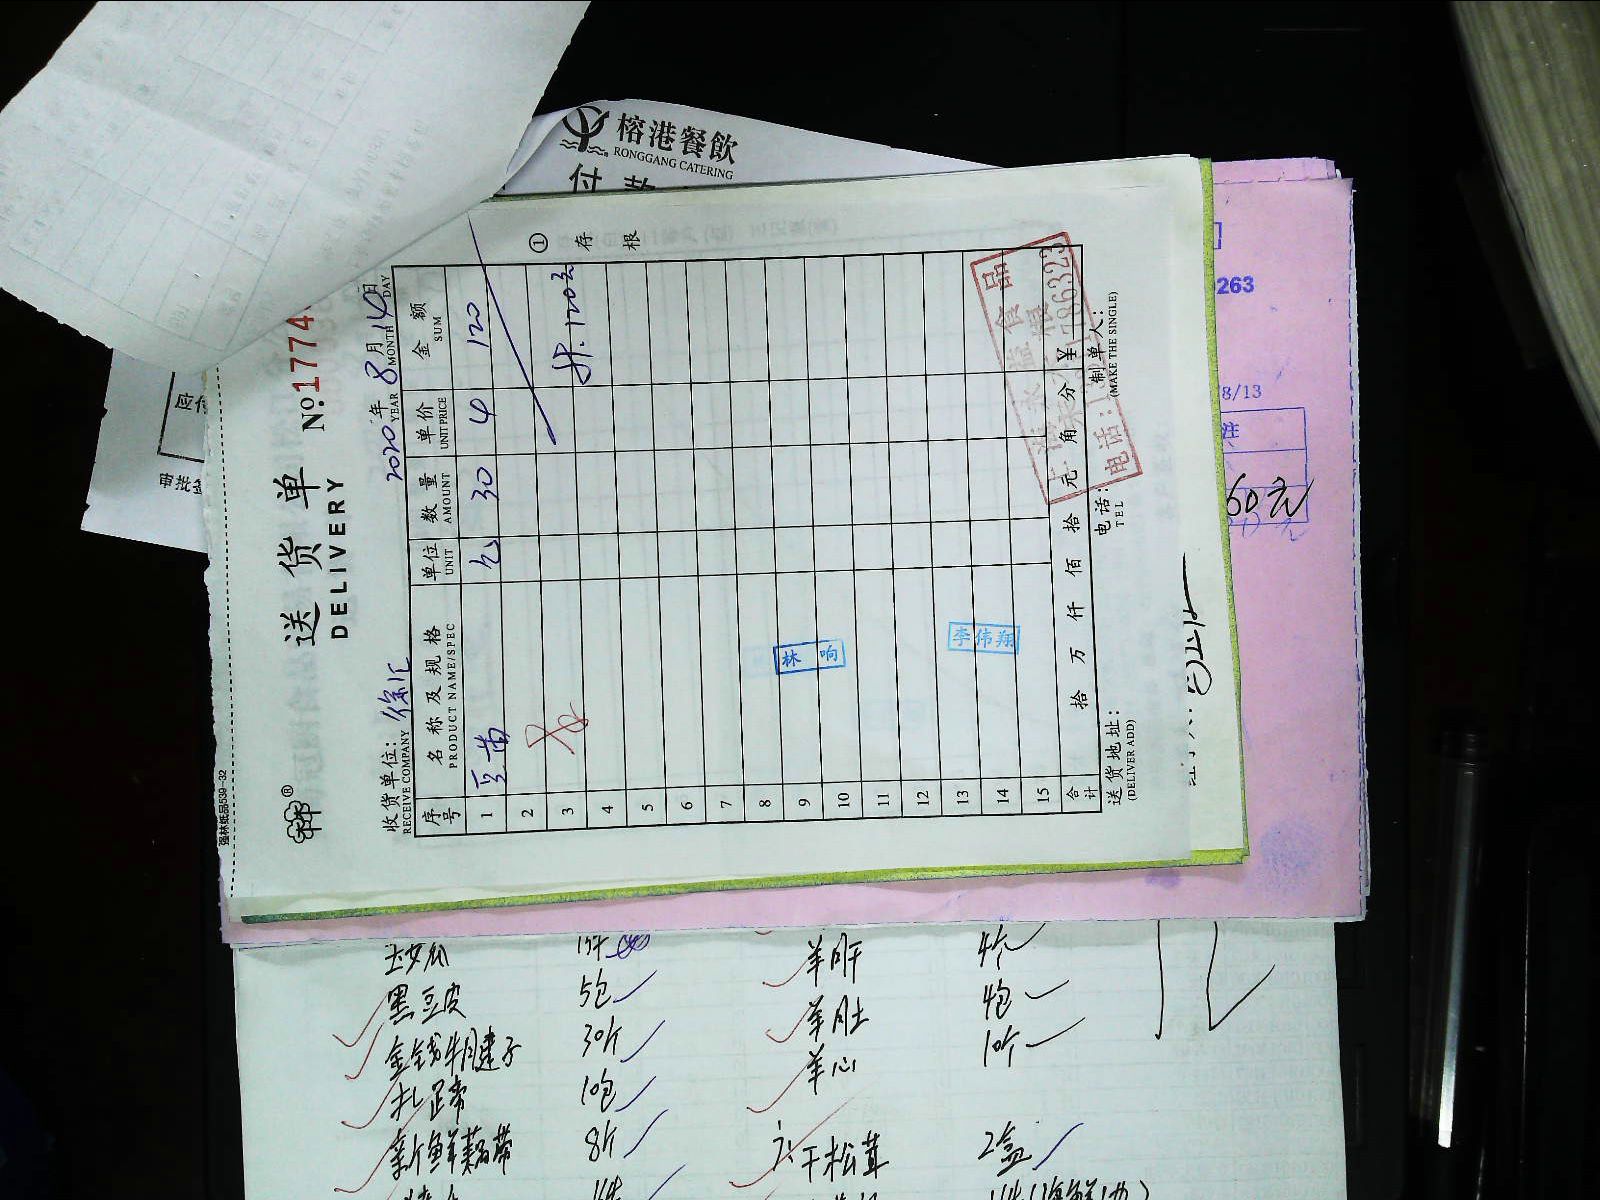 榕港餐飲
RONGGANG CATERING
付款
应付
强林纸品539-32
送货单
DELIVERY
№:1774
收货单位: 徐汇
RECEIVE COMPANY
2020年 8月 14日
YEAR MONTH DAY
① 存根
序号 名称及规格 单位 数量 单价 金额
PRODUCT NAME/SPEC UNIT AMOUNT UNIT PRICE SUM
1 豆苗 包 30 4 120
2
3 计.120元
4
5
6
7
8
9
10
11
12
13
14
15
林响
李伟翔
合计 拾 万 仟 佰 拾 元 角 分 ¥
送货地址: 电话: 制单人:
(DELIVER ADD) TEL (MAKE THE SINGLE)
食品
电话:
786323
263
8/13
注
60元
玉女瓜
黑豆皮 5包
金钱牛腱子 30斤
扎蹄 10包
新鲜藕带 8斤
羊肝 4个
羊肚 4包
羊心 10个
干松茸 2盒